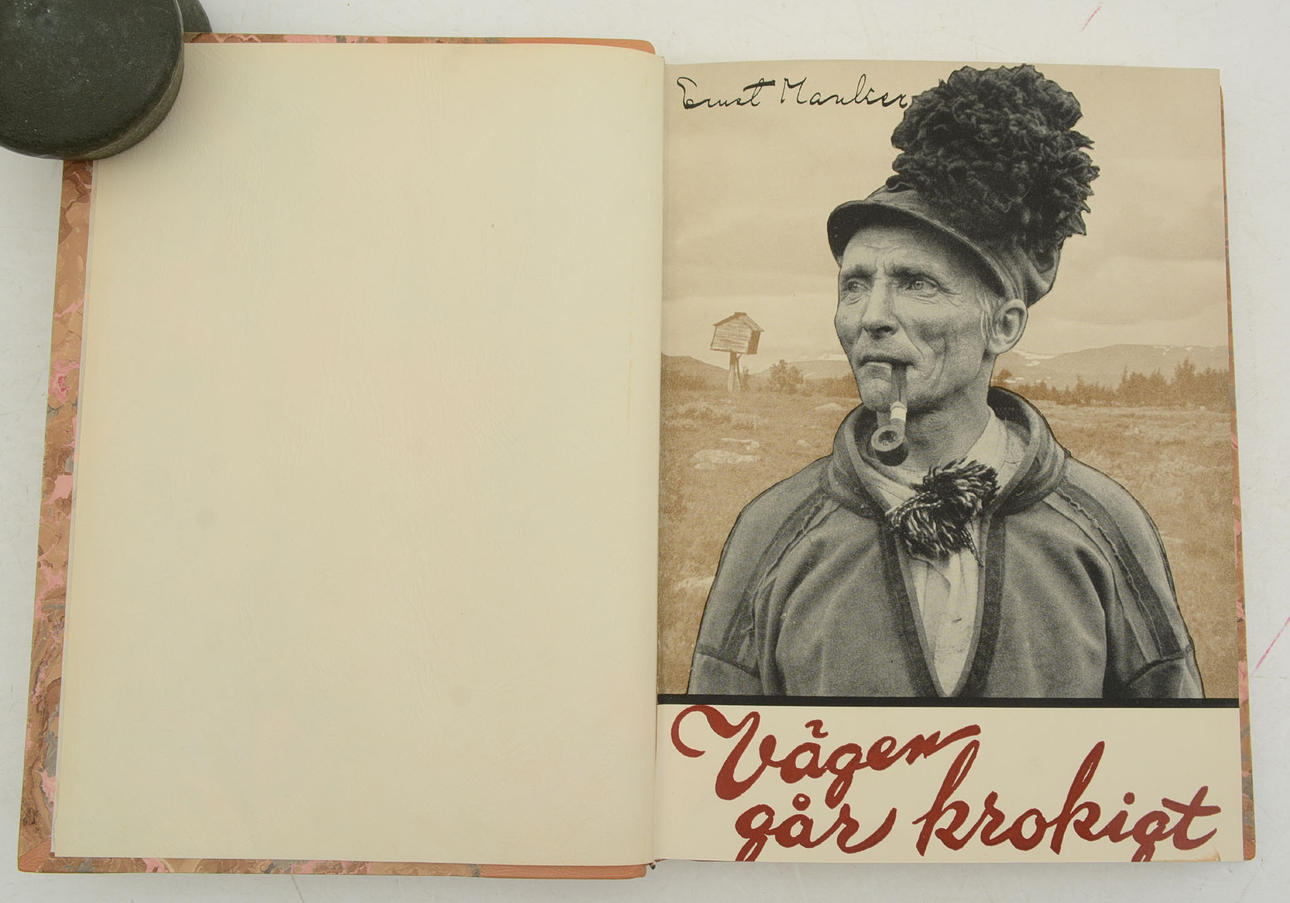 Ernst Manker
Vägen
går krokigt